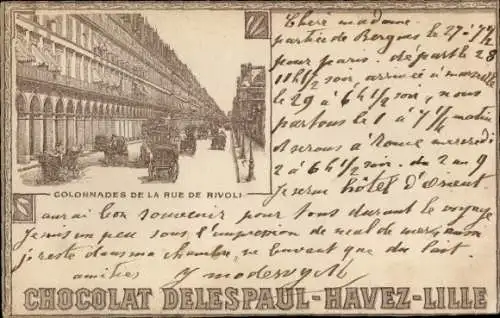 Cheré madame
partie de Bergues le 27 à 7 1/2
pour paris. départ le 28
11h 1/2 soir arrivée à marseille
le 29 à 6h 1/2 soir, nous
partons le 1 à 7 1/2 matin
et serons à Rome mercredi
2 à 6h 1/2 soir. du 2 au 9
Je serai hôtel d'orient.
COLONNADES DE LA RUE DE RIVOLI
aurai bon souvenir pour tous durant le voyage
Je suis un peu sous l'impression de mal de mer, aussi
je reste dans ma chambre, ne buvant que du lait.
amitiés
CHOCOLAT DELESPAUL-HAVEZ-LILLE